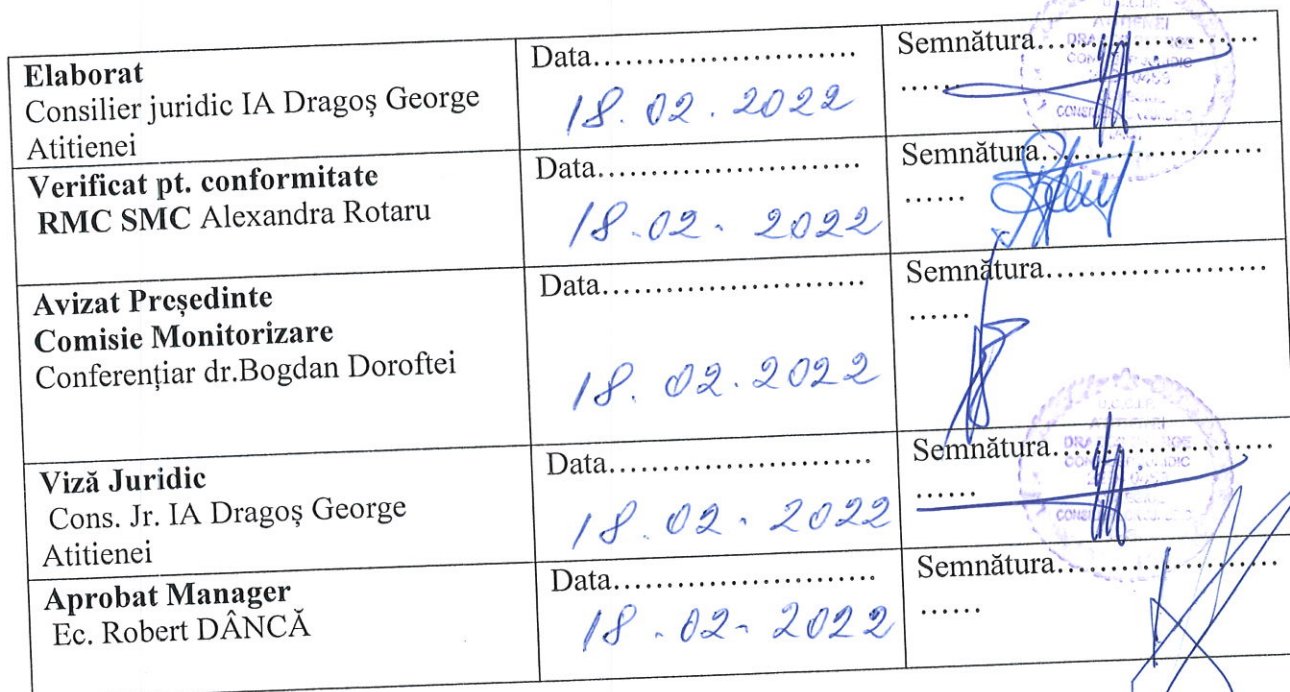 Elaborat
Consilier juridic IA Dragoș George
Atitienei
Data........................
18.02.2022
Semnătura....................
......
Verificat pt. conformitate
RMC SMC Alexandra Rotaru
Data........................
18.02.2022
Semnătura....................
......
Avizat Președinte
Comisie Monitorizare
Conferențiar dr.Bogdan Doroftei
Data........................
18.02.2022
Semnătura....................
......
Viză Juridic
Cons. Jr. IA Dragoș George
Atitienei
Data........................
18.02.2022
Semnătura....................
......
Aprobat Manager
Ec. Robert DÂNCĂ
Data........................
18-02-2022
Semnătura....................
......